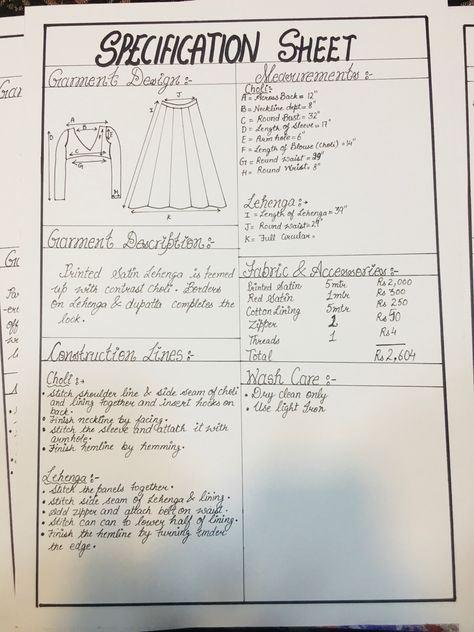 SPECIFICATION SHEET
Garment Design :-
J
I
K
A
B
D
E
C
F
G
H
Measurements :-
Choli :-
A = Across Back = 12"
B = Neckline dept = 8"
C = Round Bust = 32"
D = Length of Sleeve = 17"
E = Arm hole = 6"
F = Length of Blouse (Choli) = 14"
G = Round Waist =
H = Round Wrist = 8"
Lehenga :→
I = Length of Lehenga = 39"
J = Round waist = 29"
K = Full Circular.
Garment Description :-
Printed Satin Lehenga is teemed
up with contrast choli. Borders
on Lehenga & dupatta completes the
look.
Fabric & Accessories :-
Printed Satin 5mtr Rs 2,000
Red Satin 1mtr Rs 300
Cotton Lining 5mtr Rs 250
Zipper 1 Rs
Threads 1 Rs 4
Total Rs 2,604
Construction Lines :-
Choli :→
• Stitch shoulder line & side seam of choli
and lining together and insert hooks on
back.
• Finish neckline by facing.
• Stitch the sleeve and attath it with
armhole.
• Finish hemline by hemming.
Lehenga :-
• Stitch the panels together.
• Stitch side seam of Lehenga & lining.
• Add zipper and attach belt on waist.
• Stitch can can to lower half of lining.
• Finish the hemline by turning under
the edge.
Wash Care :-
• Dry clean only
• Use light Iron